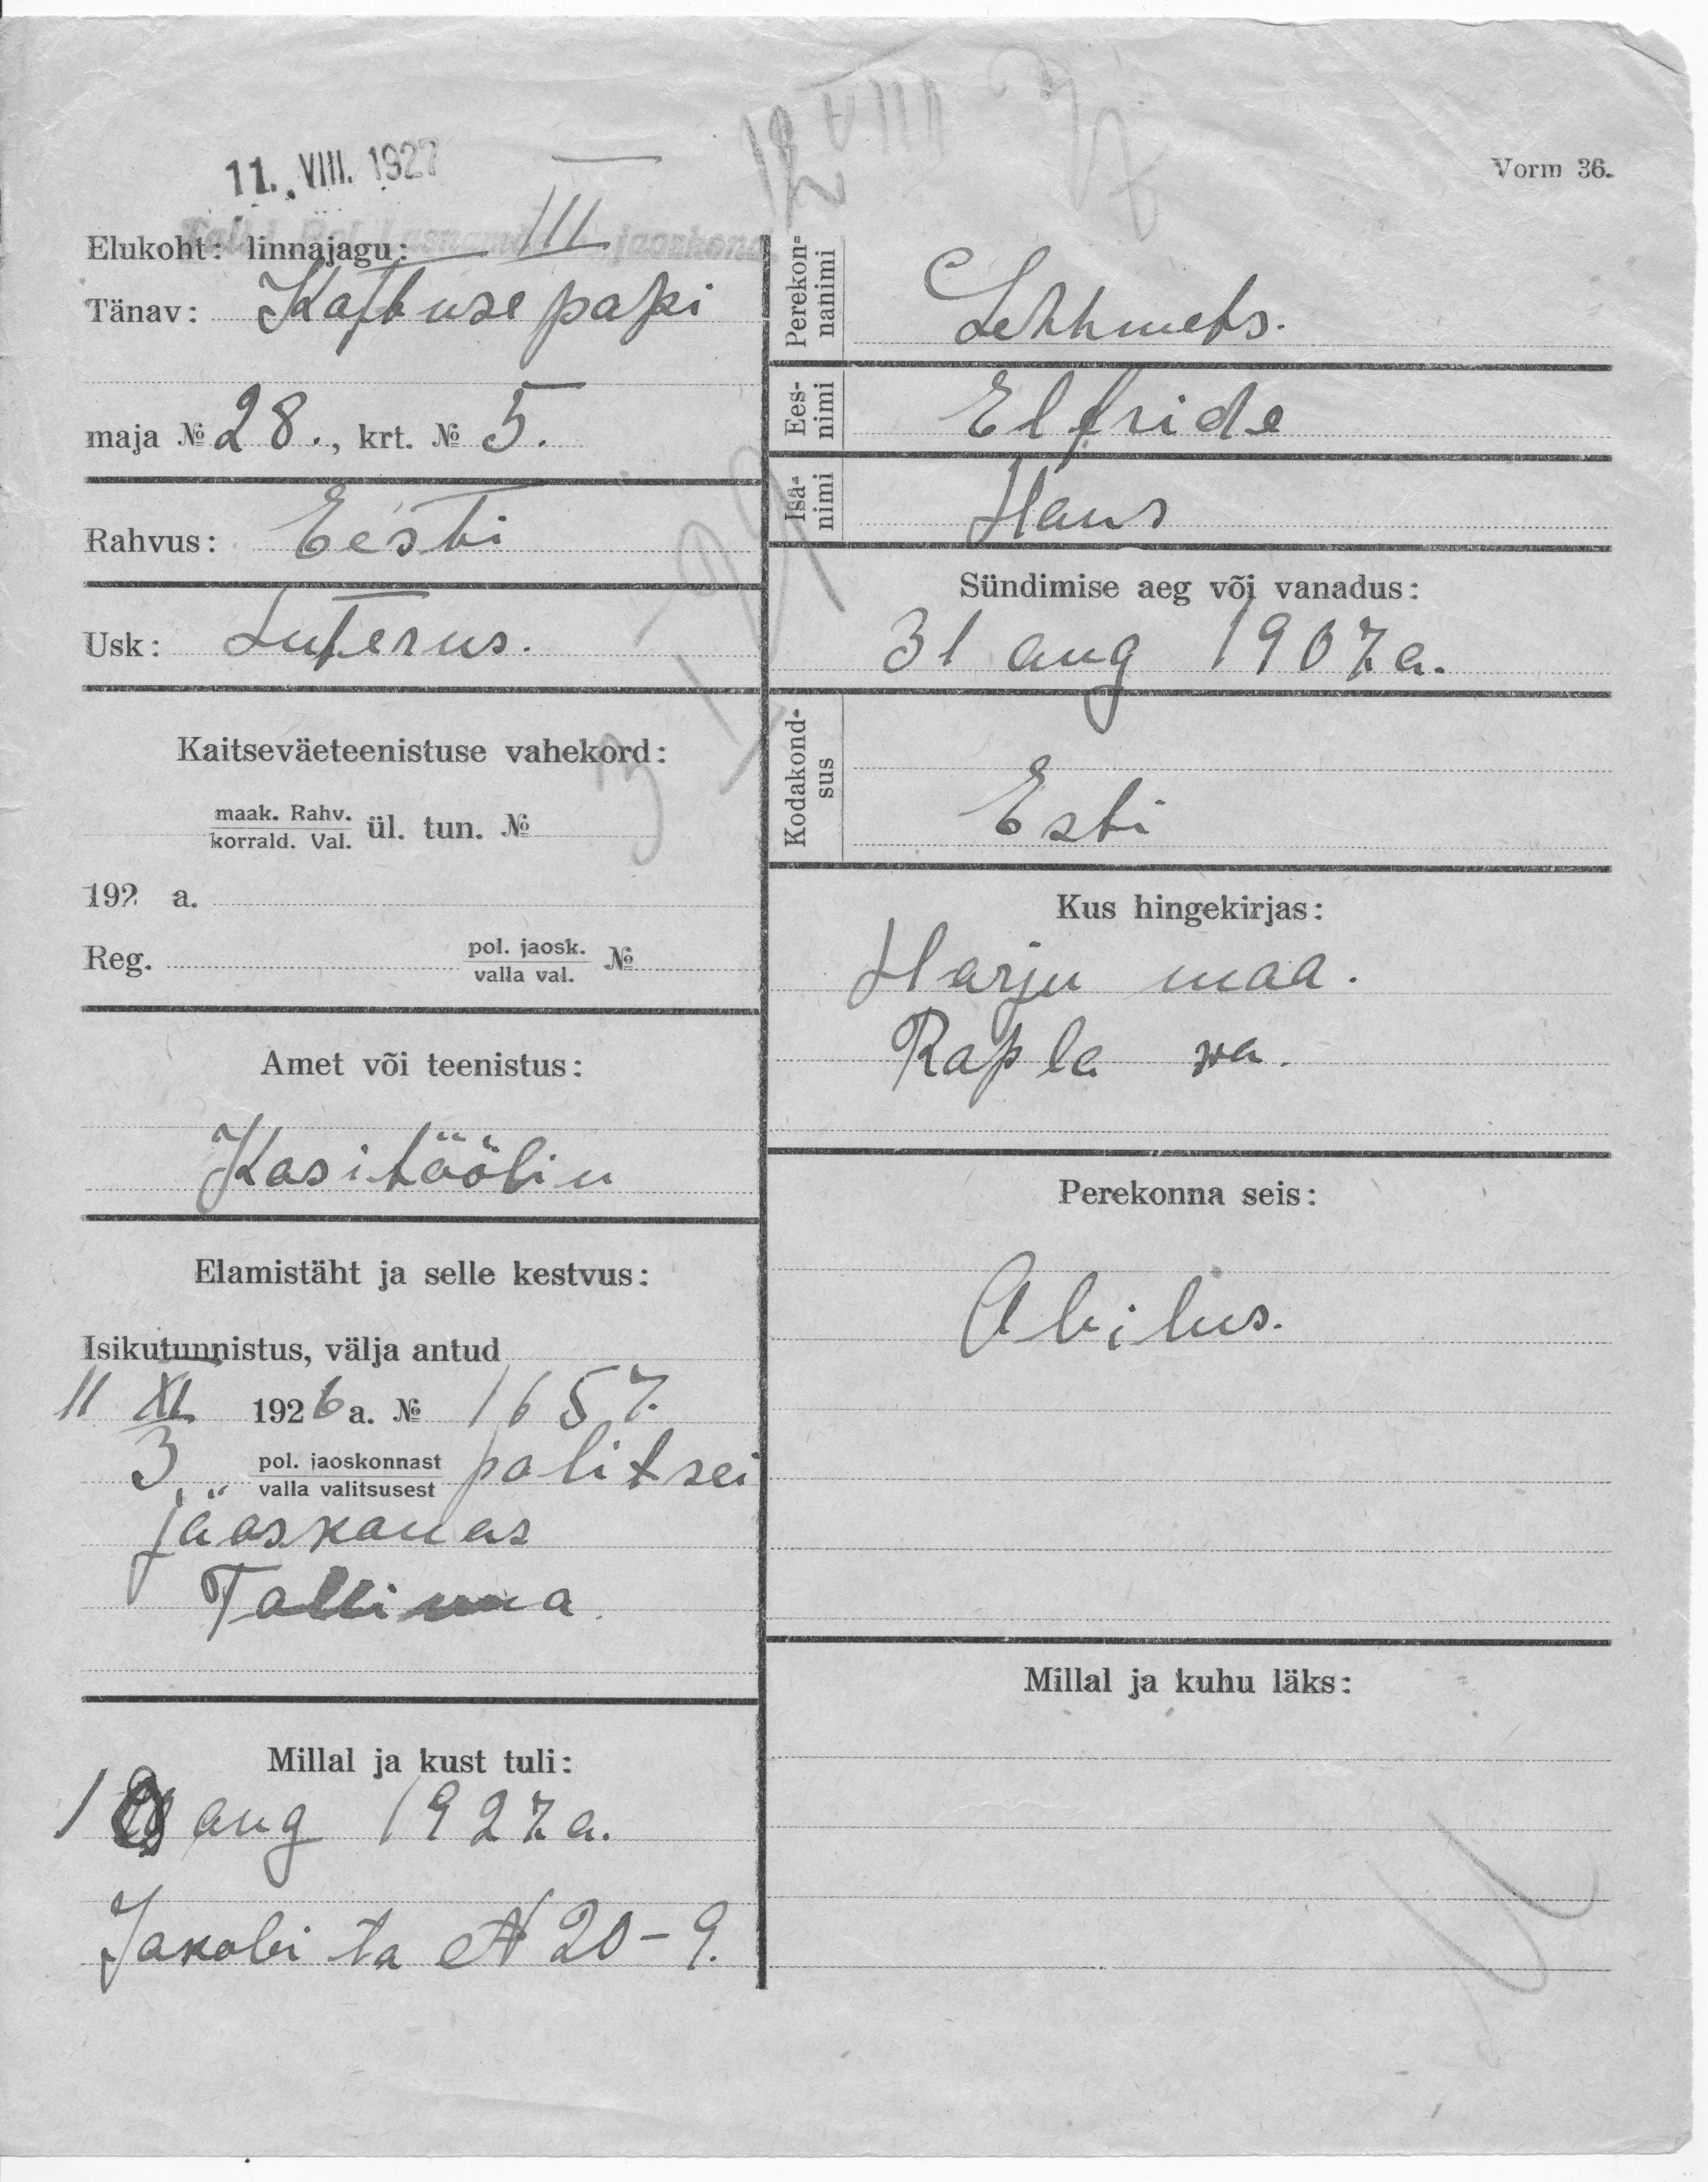 11. VIII. 1927
12 VIII 27
Vorm 36.
Elukoht: linnajagu: III
Tänav: Kattuse papi
maja № 28., krt. № 5.
Rahvus: Eesti
Usk: Luterus.
Kaitseväeteenistuse vahekord:
maak. Rahv.
korrald. Val. ül. tun. №
192 a.
Reg. pol. jaosk.
valla val. №
Amet või teenistus:
Kasitöölin
Elamistäht ja selle kestvus:
Isikutunnistus, välja antud
11 XI 1926 a. № 1657.
3 pol. jaoskonnast politsei
valla valitsusest
jaaskonas
Tallinna
Millal ja kust tuli:
10 aug 1927 a.
Jakobi ta № 20-9.
Perekon-
nanimi Lehhmets.
Ees-
nimi Elfride
Isa-
nimi Hans
Sündimise aeg või vanadus:
31 aug 1907 a.
Kodakond-
sus Esti
Kus hingekirjas:
Harju maa.
Rapla wa.
Perekonna seis:
Abilus.
Millal ja kuhu läks: